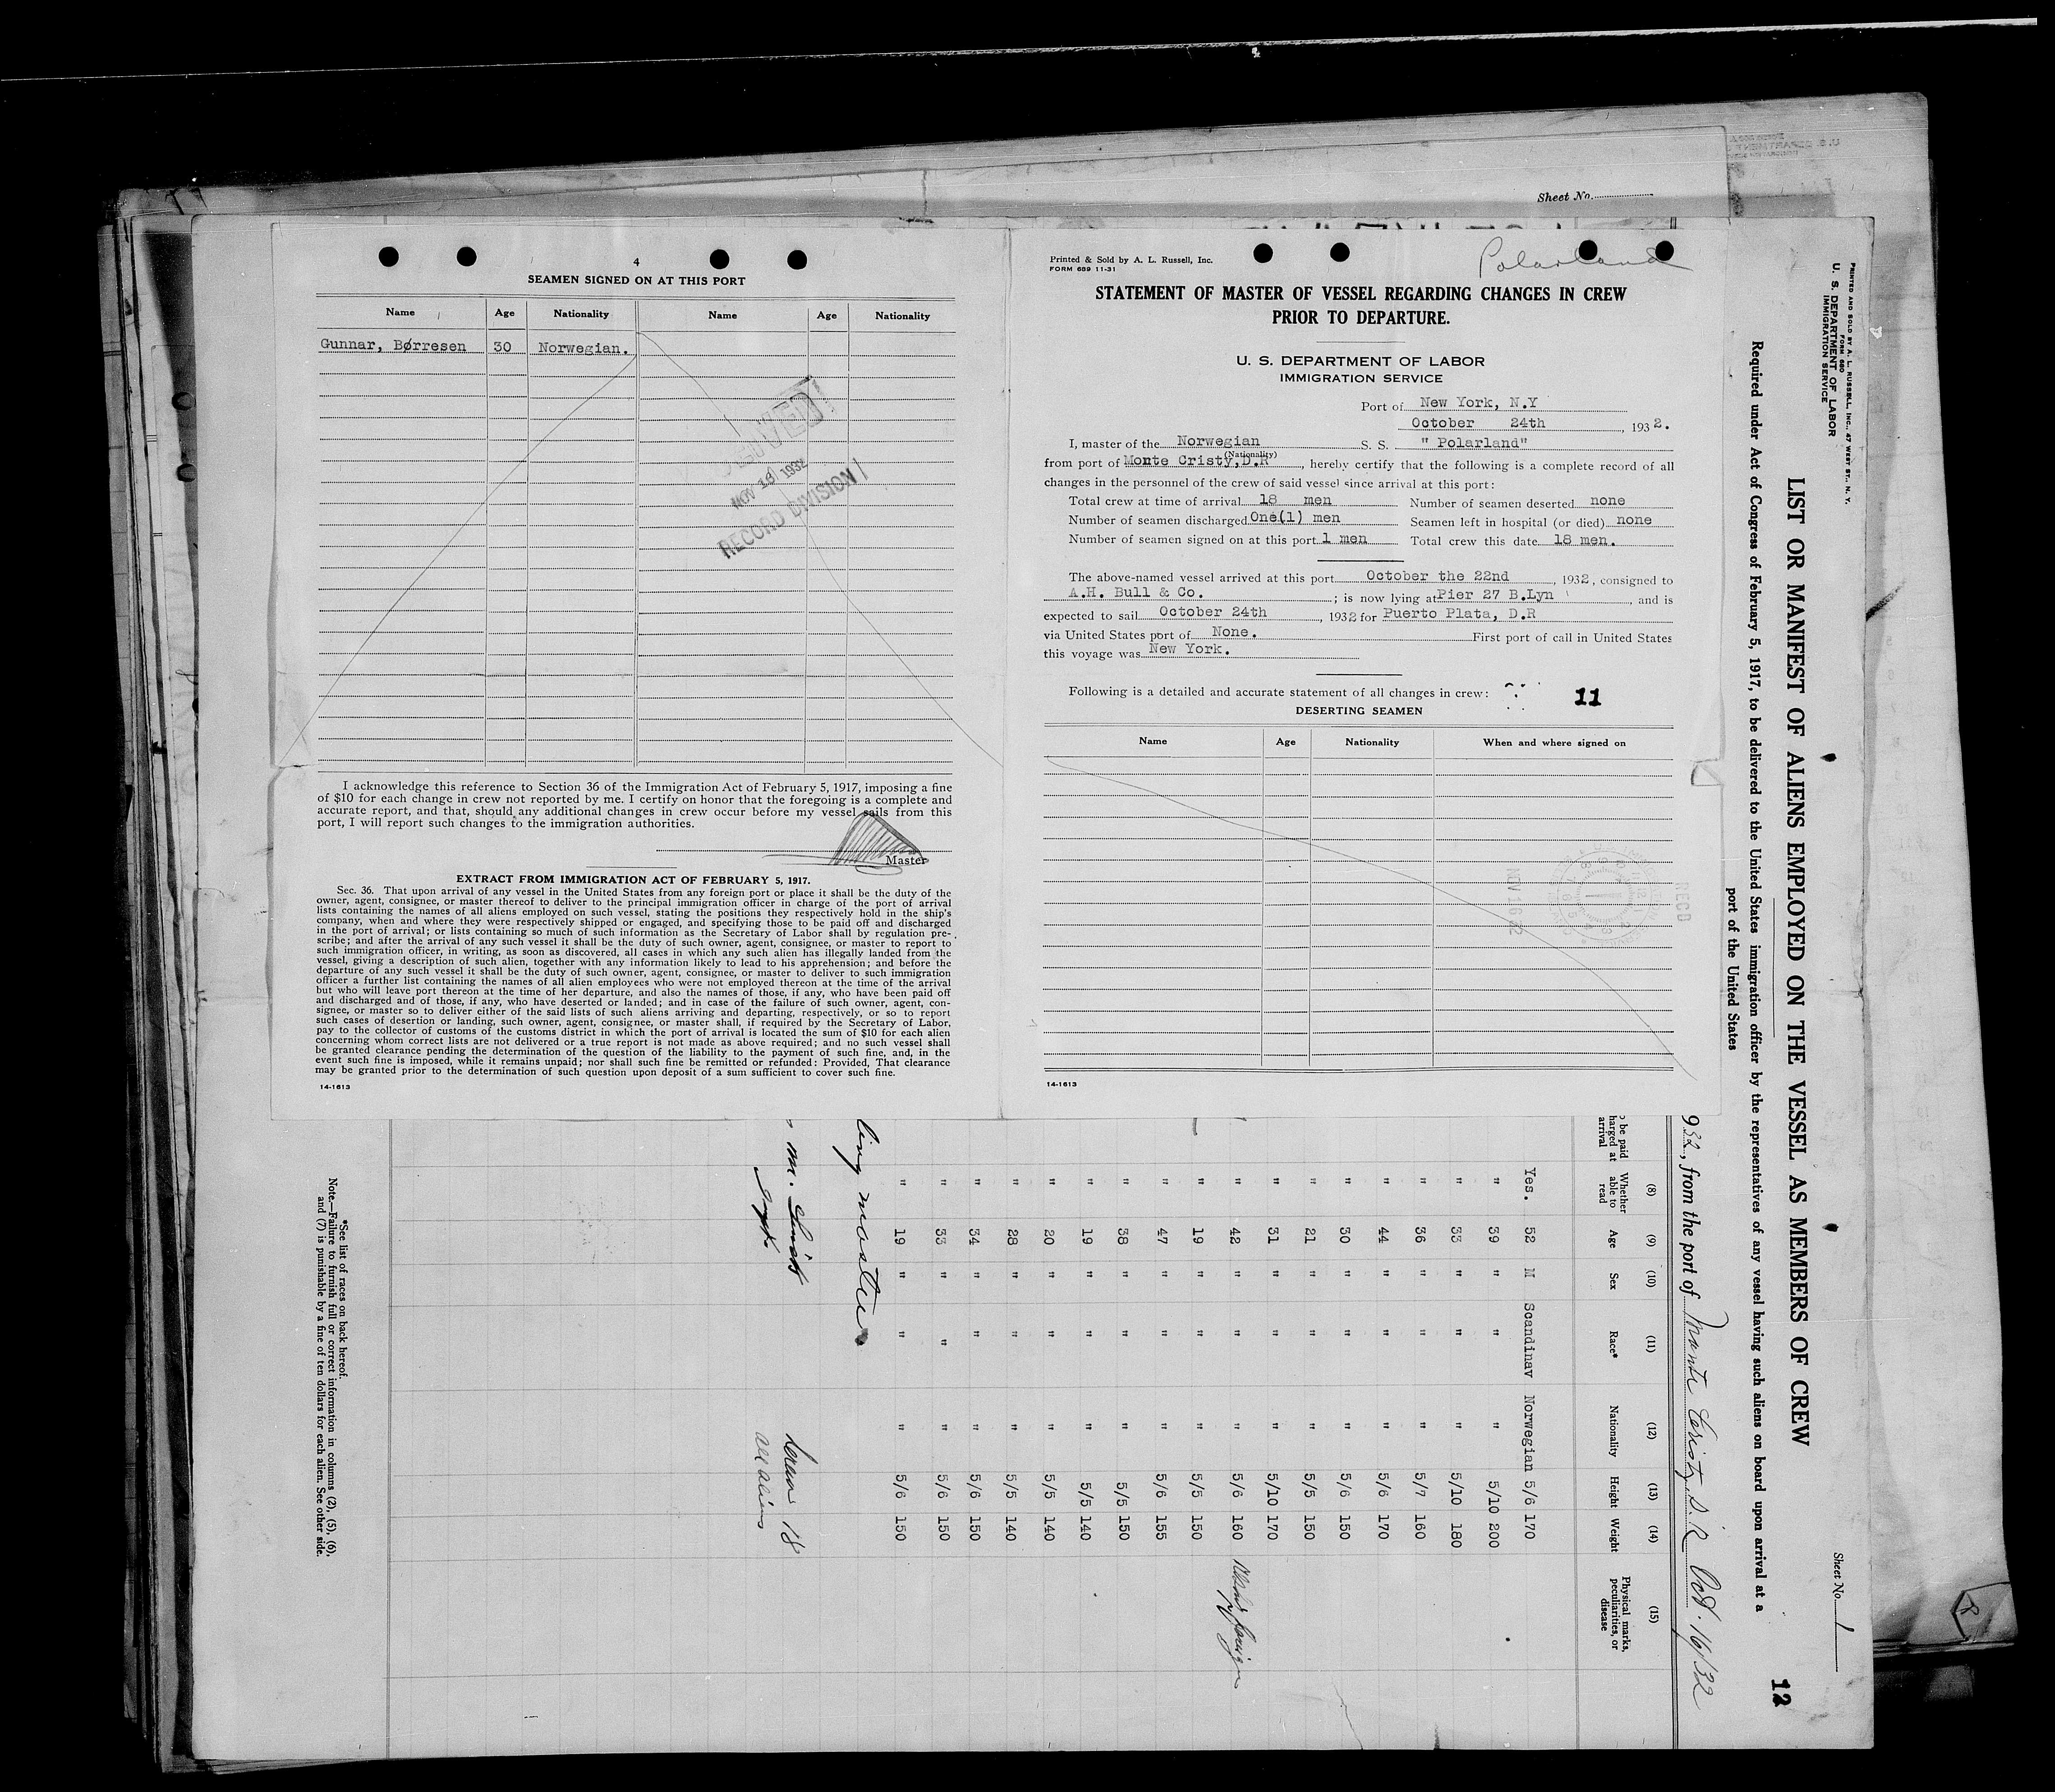 Sheet No.
4
SEAMEN SIGNED ON AT THIS PORT
Name Age Nationality Name Age Nationality
Gunnar, Børresen 30 Norwegian.
NOV 18 1932
RECORD DIVISION
I acknowledge this reference to Section 36 of the Immigration Act of February 5, 1917, imposing a fine
of $10 for each change in crew not reported by me. I certify on honor that the foregoing is a complete and
accurate report, and that, should any additional changes in crew occur before my vessel sails from this
port, I will report such changes to the immigration authorities.
Master
EXTRACT FROM IMMIGRATION ACT OF FEBRUARY 5, 1917.
Sec. 36. That upon arrival of any vessel in the United States from any foreign port or place it shall be the duty of the
owner, agent, consignee, or master thereof to deliver to the principal immigration officer in charge of the port of arrival
lists containing the names of all aliens employed on such vessel, stating the positions they respectively hold in the ship's
company, when and where they were respectively shipped or engaged, and specifying those to be paid off and discharged
in the port of arrival; or lists containing so much of such information as the Secretary of Labor shall by regulation pre-
scribe; and after the arrival of any such vessel it shall be the duty of such owner, agent, consignee, or master to report to
such immigration officer, in writing, as soon as discovered, all cases in which any such alien has illegally landed from the
vessel, giving a description of such alien, together with any information likely to lead to his apprehension; and before the
departure of any such vessel it shall be the duty of such owner, agent, consignee, or master to deliver to such immigration
officer a further list containing the names of all alien employees who were not employed thereon at the time of the arrival
but who will leave port thereon at the time of her departure, and also the names of those, if any, who have been paid off
and discharged and of those, if any, who have deserted or landed; and in case of the failure of such owner, agent, con-
signee, or master so to deliver either of the said lists of such aliens arriving and departing, respectively, or so to report
such cases of desertion or landing, such owner, agent, consignee, or master shall, if required by the Secretary of Labor,
pay to the collector of customs of the customs district in which the port of arrival is located the sum of $10 for each alien
concerning whom correct lists are not delivered or a true report is not made as above required; and no such vessel shall
be granted clearance pending the determination of the question of the liability to the payment of such fine, and, in the
event such fine is imposed, while it remains unpaid; nor shall such fine be remitted or refunded: Provided, That clearance
may be granted prior to the determination of such question upon deposit of a sum sufficient to cover such fine.
14-1613
Polarland
Printed & Sold by A. L. Russell, Inc.
FORM 689 11-31
STATEMENT OF MASTER OF VESSEL REGARDING CHANGES IN CREW
PRIOR TO DEPARTURE.
U. S. DEPARTMENT OF LABOR
IMMIGRATION SERVICE
Port of New York, N.Y
October 24th, 1932.
I, master of the Norwegian S. S. " Polarland"
(Nationality)
from port of Monte Cristy, D.R, hereby certify that the following is a complete record of all
changes in the personnel of the crew of said vessel since arrival at this port:
Total crew at time of arrival 18 men Number of seamen deserted none
Number of seamen discharged One(1) men Seamen left in hospital (or died) none
Number of seamen signed on at this port 1 men Total crew this date 18 men.
The above-named vessel arrived at this port October the 22nd, 1932, consigned to
A.H. Bull & Co. ; is now lying at Pier 27 B.Lyn, and is
expected to sail October 24th, 1932 for Puerto Plata, D.R
via United States port of None. First port of call in United States
this voyage was New York.
Following is a detailed and accurate statement of all changes in crew:
11
DESERTING SEAMEN
Name Age Nationality When and where signed on
NOV 16 32
RECD
14-1613
PRINTED AND SOLD BY A. L. RUSSELL, INC., 47 WEST ST., N. Y.
FORM 680
U. S. DEPARTMENT OF LABOR
IMMIGRATION SERVICE
Sheet No. 1
12
LIST OR MANIFEST OF ALIENS EMPLOYED ON THE VESSEL AS MEMBERS OF CREW
Required under Act of Congress of February 5, 1917, to be delivered to the United States immigration officer by the representatives of any vessel having such aliens on board upon arrival at a
port of the United States
932, from the port of Monte Cristy, D. R. Oct. 16/32
(8) (9) (10) (11) (12) (13) (14) (15)
be paid
harged at
arrival
Whether able to read Age Sex Race* Nationality Height Weight Physical marks, peculiarities, or disease
Yes. 52 M Scandinav Norwegian 5/6 170
" 39 " " " 5/10 200
" 33 " " " 5/10 180
" 36 " " " 5/7 160
" 44 " " " 5/6 170
" 30 " " " 5/6 150
" 21 " " " 5/5 150
" 31 " " " 5/10 170
" 42 " " " 5/6 160
" 19 " " " 5/5 150
" 47 " " " 5/6 155
" 38 " " " 5/5 150
" 19 " " " 5/5 140
" 20 " " " 5/5 140
" 28 " " " 5/5 140
" 34 " " " 5/6 150
" 33 " " " 5/6 150
" 19 " " " 5/6 150
ling master
18
all aliens
*See list of races on back hereof.
Note.—Failure to furnish full or correct information in columns (2), (5), (6),
and (7) is punishable by a fine of ten dollars for each alien. See other side.